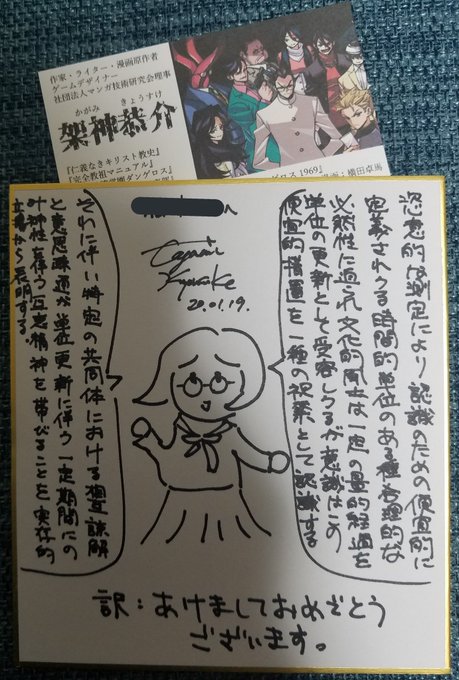 作家・ライター・漫画原作者
ゲームデザイナー
社団法人マンガ技術研究会理事
かがみ きょうすけ
架神恭介
『仁義なきキリスト教史』
『完全教祖マニュアル』
ダンゲロス』
ゲロス1969』
画:横田卓馬
Kagami
Kyousuke
20.01.19.
恣意的な測定により認識のための便宜的に
定義されうる時間的単位のある種合理的な
必然性に迫られ文化的は一定の量的経過を
単位の更新として受容しうるが意識はこの
便宜的措置を一種の祝祭として認識する
それに伴い特定の共同体における相互諒解
と意思疎通が単位更新に伴う一定期間にの
み神性を伴う互恵精神を帯びることを実存的
立場から表明する。
訳:あけましておめでとう
ございます。